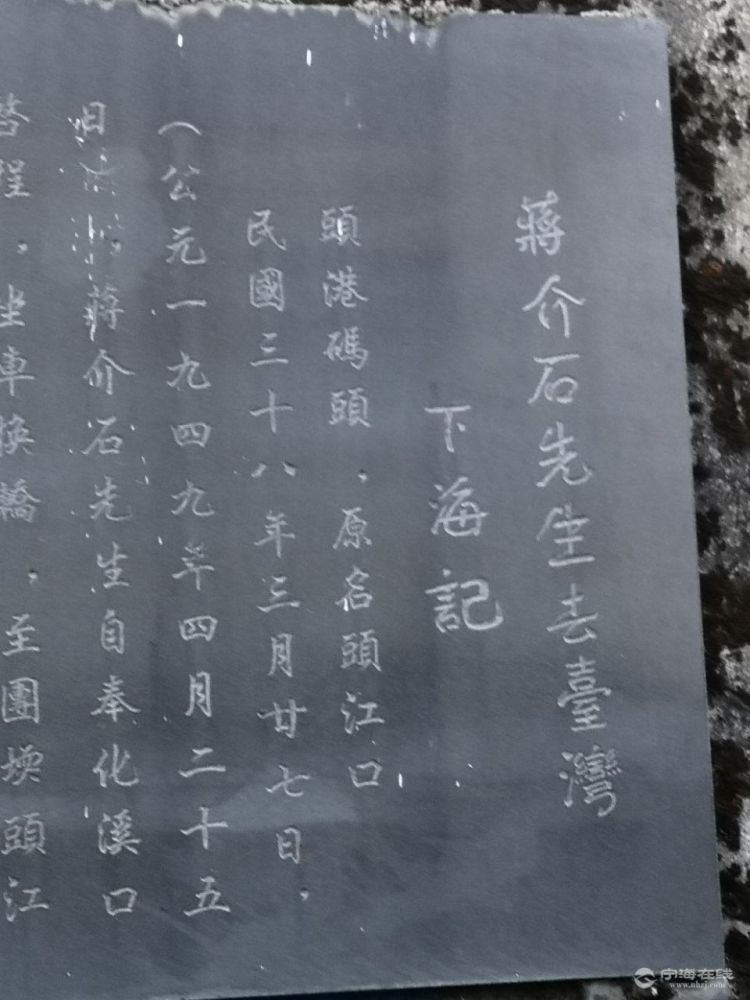 蔣介石先生去臺灣
下海記
頭港碼頭,原名頭江口
民國三十八年三月廿七日,
(公元一九四九年四月二十五
日 蔣介石先生自奉化溪口
啓程,坐車換轎,至團堧頭江
宁海在线
www.nhzj.com